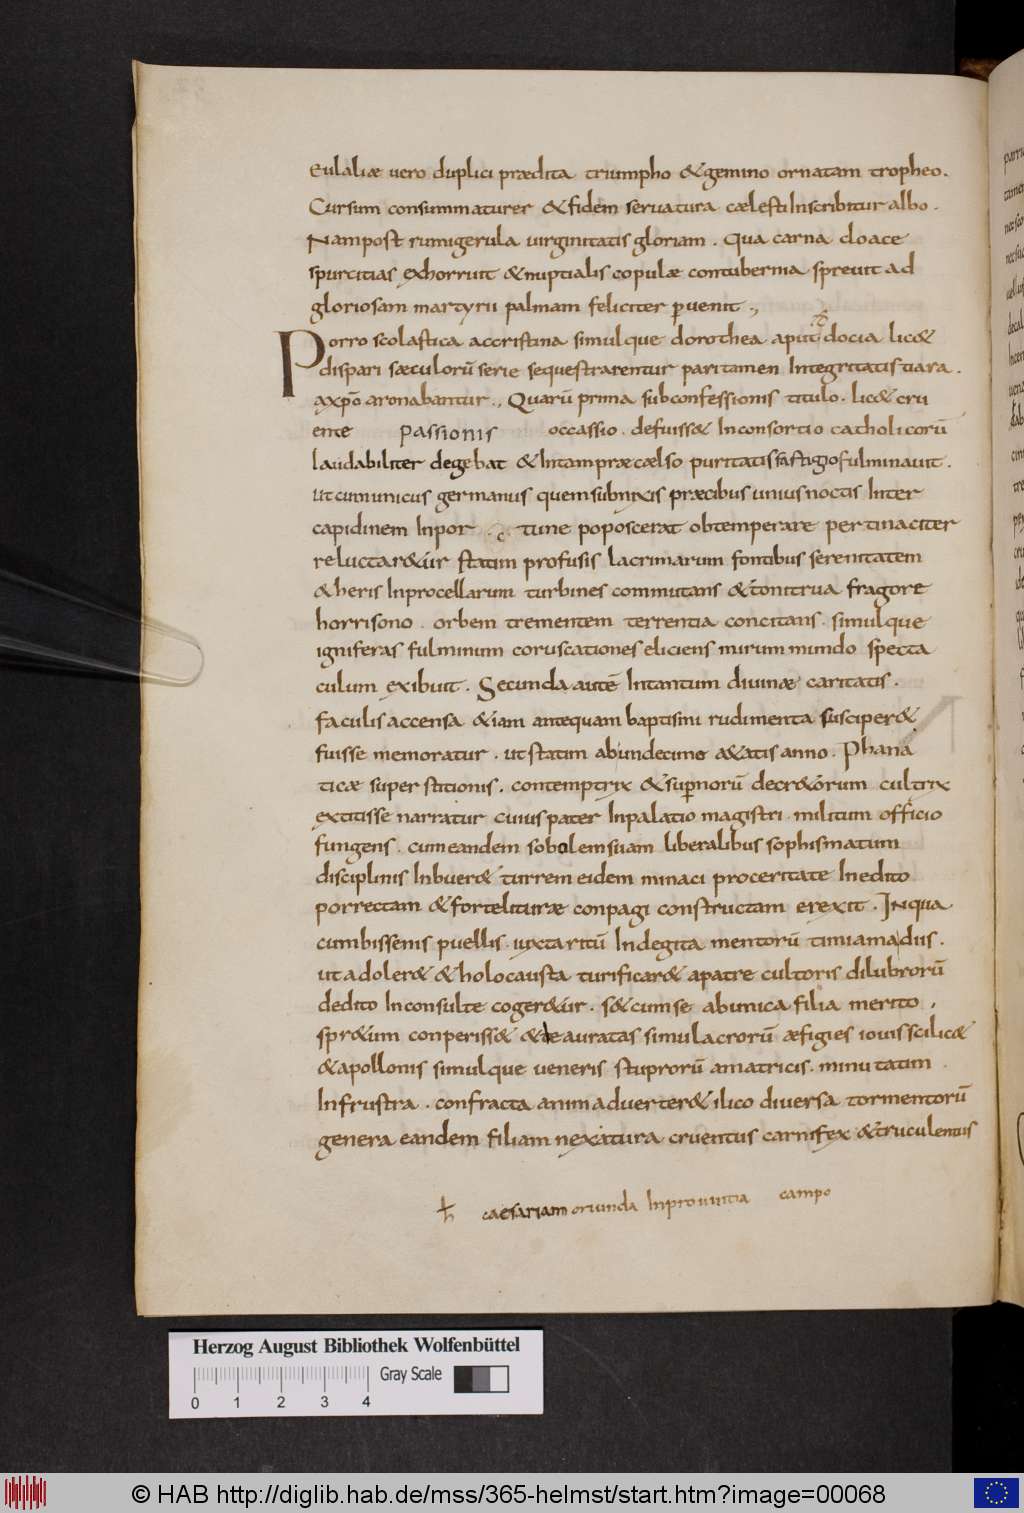 Eulaliæ vero duplici prædita triumpho & gemino ornatam tropheo.
Cursum consummaturer & fidem servatura cælesti Inscribitur albo.
Nam post rumigerula virginitatis gloriam. Qua carna cloace
spurcitias exhorruit & nuptialis copulæ contubernia sprevit ad
gloriosam martyrii palmam feliciter pvenit.,
Porro scolastica ac cristina simulque dorothea aput docia lic&
dispari sæculorū serie sequestrarentur pari tamen Integritatis tiara.
a xpō aronabantur., Quarū prima sub confessionis titulo. lic& cru
ente passionis occassio. defuiss& In consortio catholicorū
laudabiliter degebat & Intam præcælso puritatis fastigio fulminavit.
ut cum unicus germanus quem subnixis præcibus unius noctis Inter
capidinem Inpor tune poposcerat obtemperare pertinaciter
reluctar&ur statim profusis lacrimarum fontibus serenitatem
&heris Inprocellarum turbines commutans & tonitrua fragore
horrisono. orbem trementem terrentia concitans. simulque
igniferas fulminum coruscationes eliciens mirum mundo specta
culum exibuit. Secunda autē Intantum divinæ caritatis.
faculis accensa &iam antequam baptismi rudimenta susciper&
fuisse memoratur. ut statim ab undecimo a&atis anno. Phana
ticæ superstitionis. contemptrix & supnorū decr&orum cultrix
extitisse narratur cuius pater Inpalatio magistri. militum officio
fungens. cum eandem sobolem suam liberalibus sophismatum
disciplinis Inbuer& turrem eidem minaci proceritate Inedito
porrectam & forte lituræ conpagi constructam erexit. In qua
cum bissenis puellis. iuxta ritū Indegita mentorū timiama diis.
ut adoler& & holocausta turificar& a patre cultoris dilubrorū
dedito Inconsulte coger&ur. s&cum se ab unica filia merito.
spr&um conperiss& & deauratas simulacrorū æfigies iovis scilic&
& apollonis simulque veneris stuprorū amatricis. minutatim
Infrustra. confracta animadverter& ilico diversa tormentorū
genera eandem filiam nexatura cruentus carnifex & truculentus
caesariam oriunda Inprovintia campo
Herzog August Bibliothek Wolfenbüttel
Gray Scale
0 1 2 3 4
© HAB http://diglib.hab.de/mss/365-helmst/start.htm?image=00068